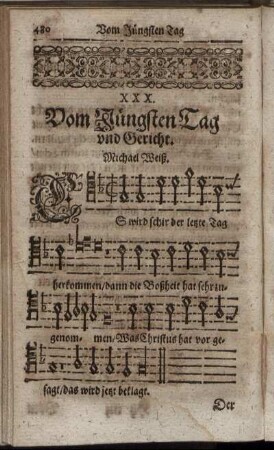 480 Vom Jüngsten Tag
XXX.
Vom Jüngsten Tag
vnd Gericht.
Michael Weiß.
ES wird schir der letzte Tag
herkommen/dann die Boßheit hat sehr in-
genom- men/Was Christus hat vor ge-
sagt/das wird jetzt beklagt.
Der